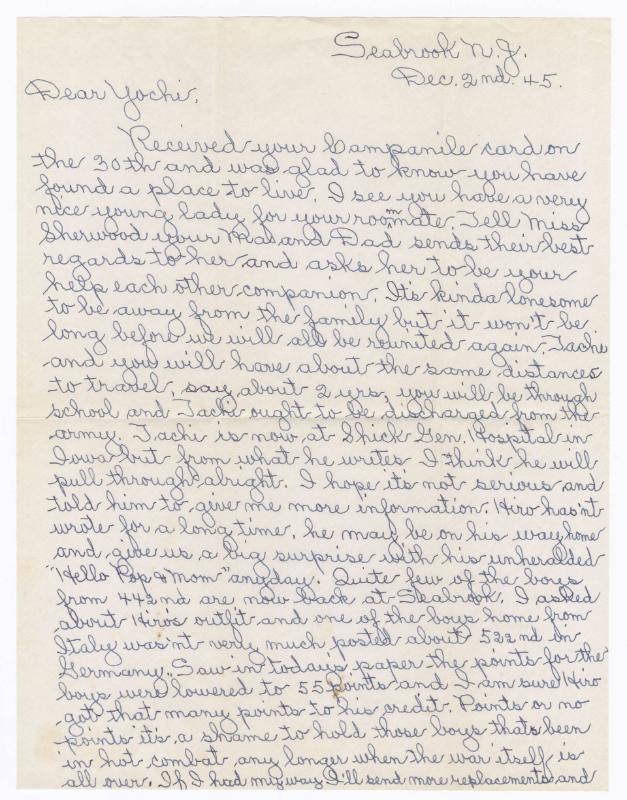 Seabrook N.J.
Dec. 2nd. 45.
Dear Yochi,
Received your Campanile card on
the 30th and was glad to know you have
found a place to live. I see you have a very
nice young lady for your roommate. Tell Miss
Sherwood your Ma and Dad sends their best
regards to her and asks her to be your
help each other companion. Its kinda lonesome
to be away from the family but it won't be
long before we will all be reunited again. Tachi
and you will have about the same distances
to travel, say about 2 yrs, you will be through
school and Tachi ought to be discharged from the
army. Tachi is now at Shick Gen. Hospital in
Iowa but from what he writes I think he will
pull through alright. I hope its not serious and
told him to give me more information. Hiro hasn't
wrote for a long time, he may be on his way home
and give us a big surprise with his unheralded
"Hello Pop & Mom" anyday. Quite few of the boys
from 442nd are now back at Seabrook. I asked
about Hiro's outfit and one of the boys home from
Italy was'nt very much posted about 522nd in
Germany. Saw in today's paper the points for the
boys were lowered to 55 points and I am sure Hiro
got that many points to his credit. Points or no
points it's a shame to hold those boys thats been
in hot combat any longer when the war itself is
all over. If I had my way I'll send more replacements and